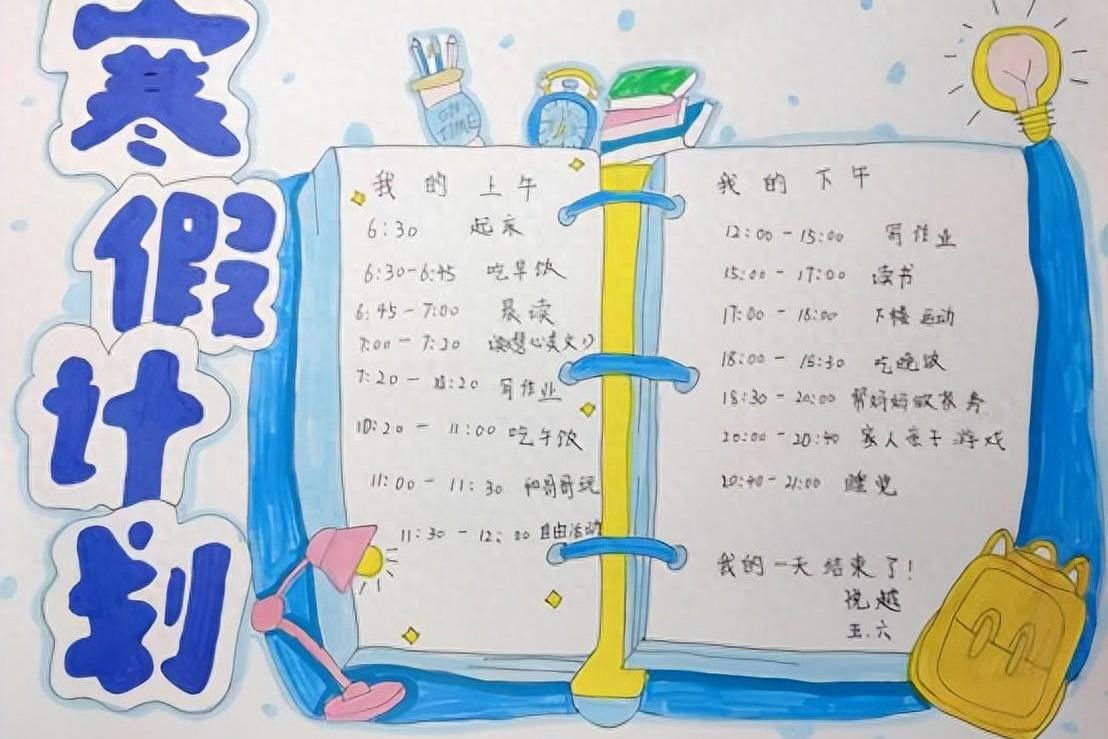 寒假计划
ON TIME
我的上午
6:30 起床
6:30-6:45 吃早饭
6:45-7:00 晨读
7:00-7:20
7:20- :20 写作业
10:20-11:00 吃午饭
11:00-11:30 和哥哥玩
11:30-12:00 自由活动
我的下午
12:00-15:00 写作业
15:00-17:00 读书
17:00-18:00 下楼运动
18:00-15:30 吃晚饭
18:30-20:00 帮妈妈做家务
20:00-20:40 家人亲子游戏
20:40-21:00 睡觉
我的一天结束了!
悦越
五.六